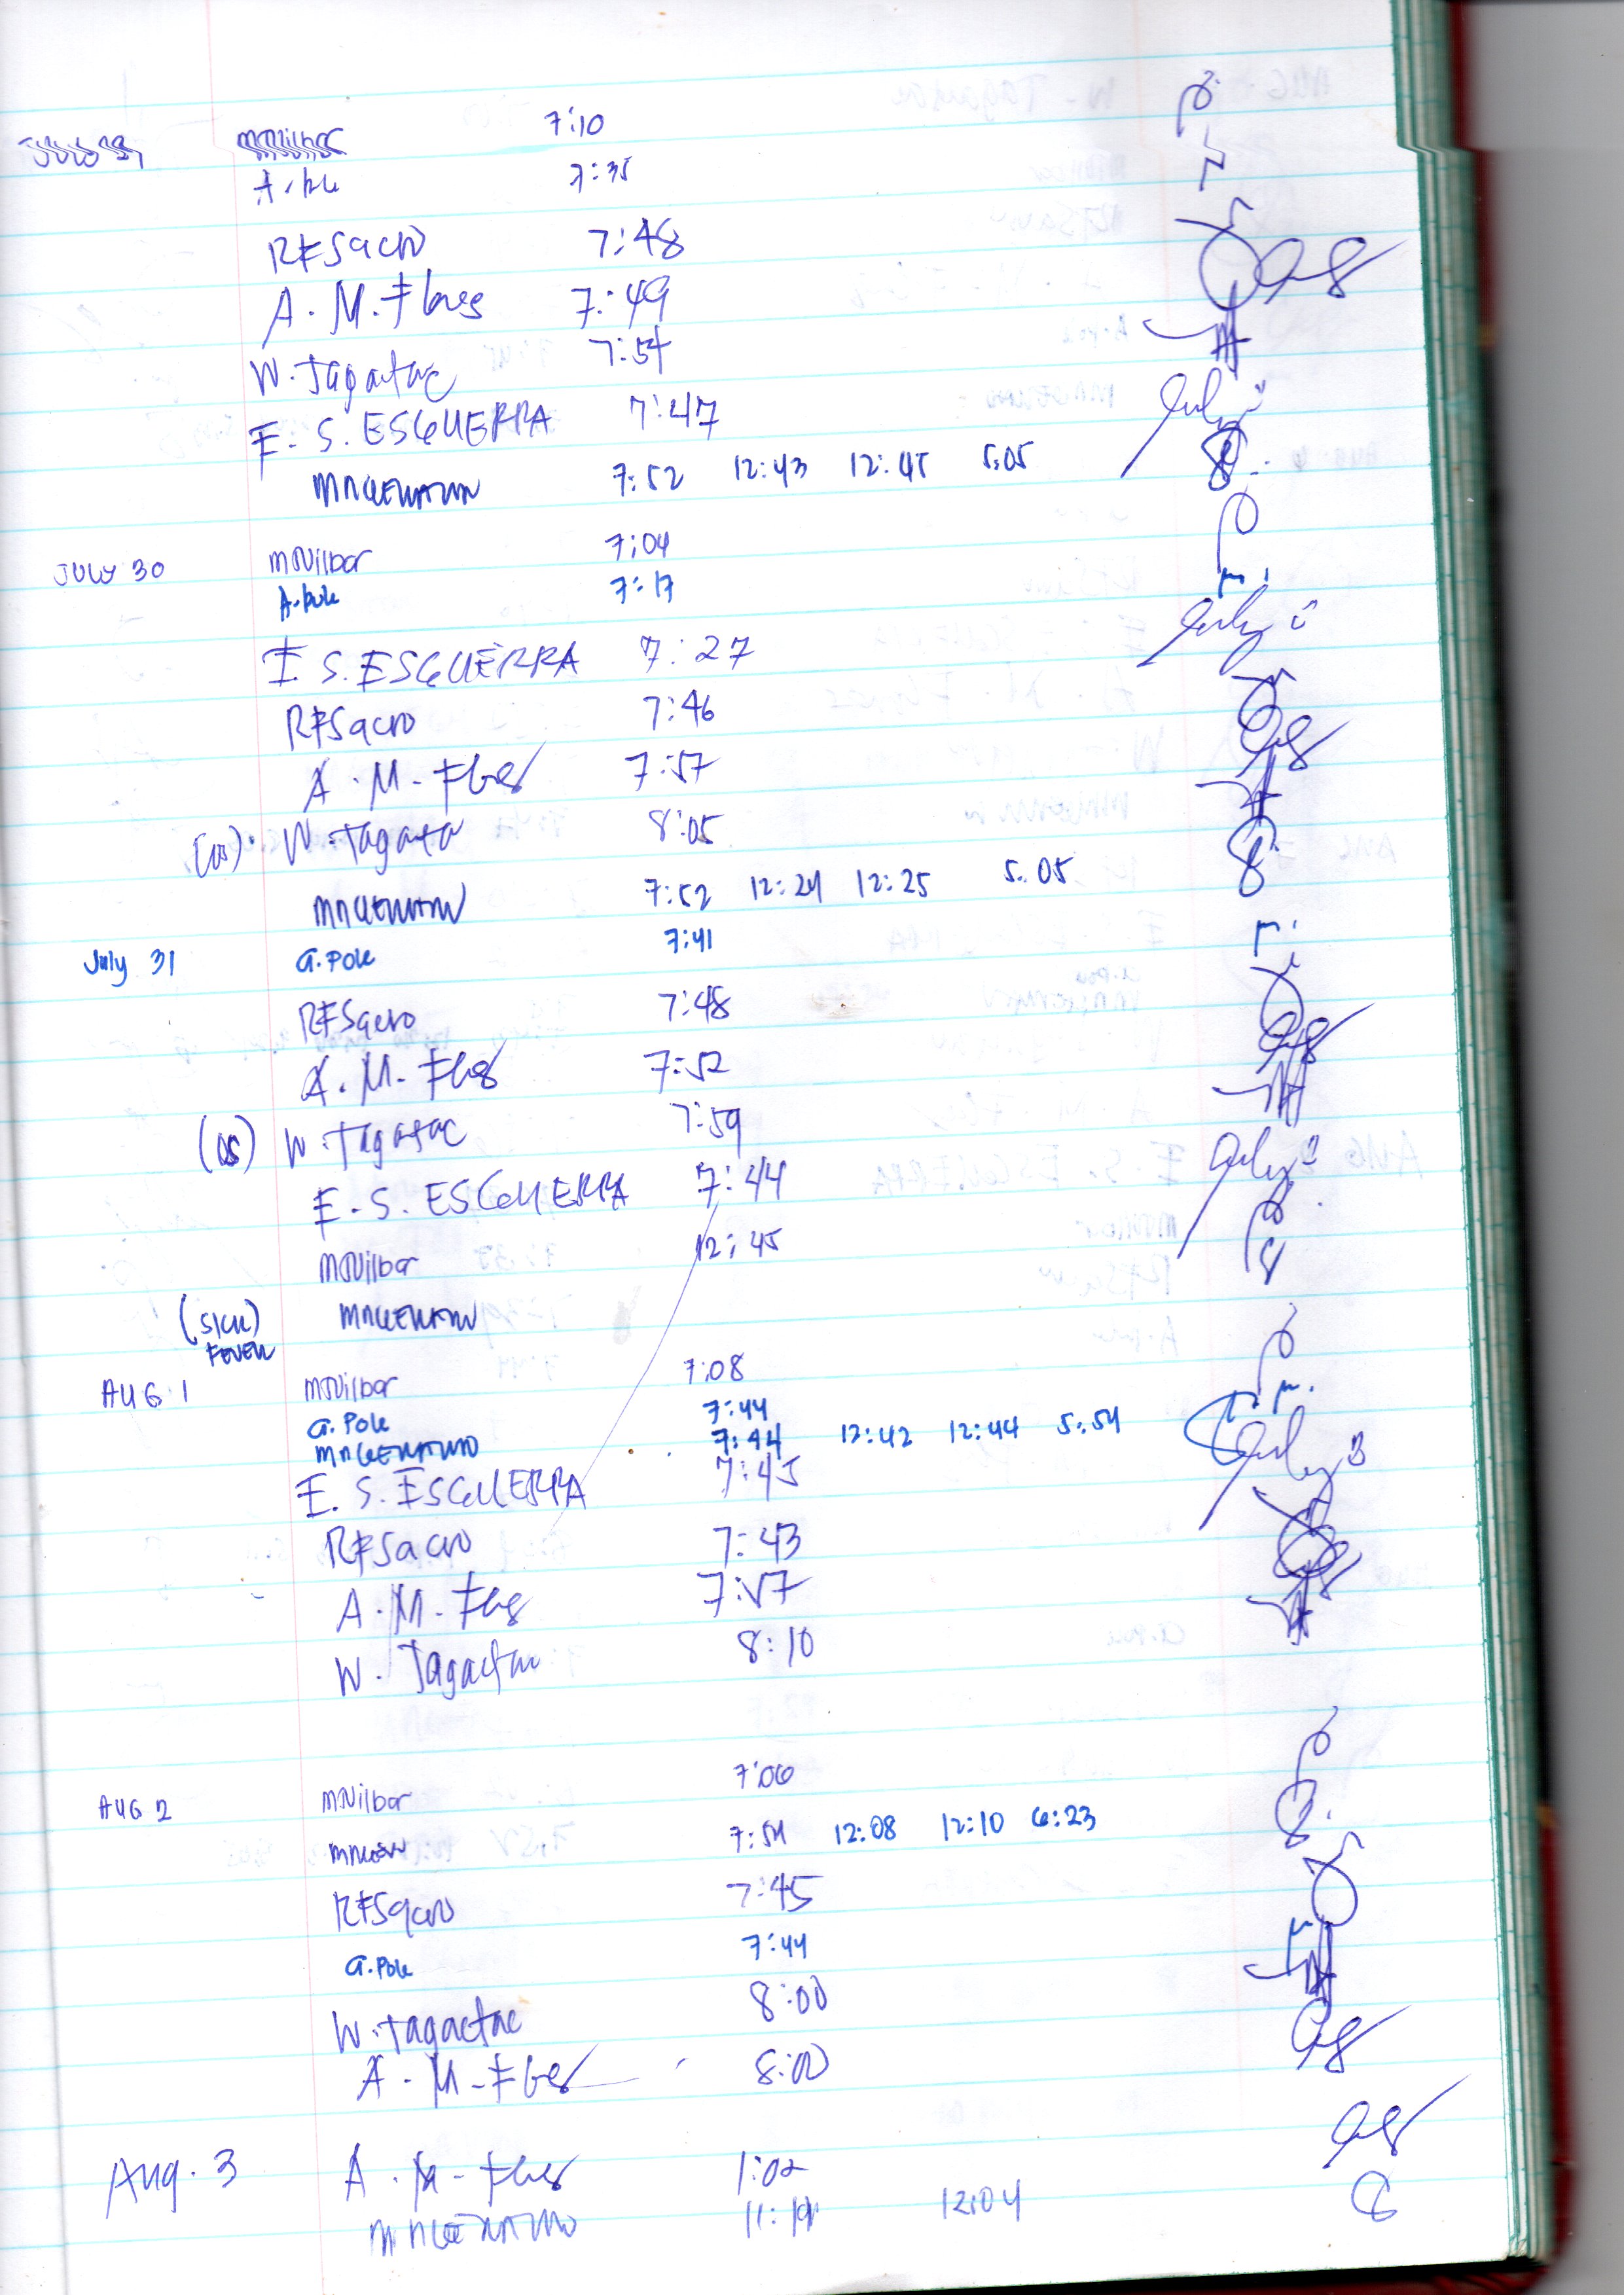 JULY 29 MNilbar 7:10
A. Pole 7:35
RFSacro 7:48
A. M. Flores 7:49
W. Tagactac 7:54
E. S. ESGUERRA 7:47
7:52 12:43 12:45 5:05
JULY 30 MNilbar 7:04
A. Pole 7:17
E S. ESGUERRA 7:27
RFSacro 7:46
A. M. Flores 7:57
W. Tagacta 8:05
7:52 12:24 12:25 5:05
July 31 A. Pole 7:41
RFSacro 7:48
A. M. Flores 7:52
(OS) W. Tagactac 7:59
E. S. ESGUERRA 7:44
MNilbar 12:45
(SICK)
FEVER
AUG. 1 MNilbar 7:08
A. Pole 7:44
7:44 12:42 12:44 5:54
E. S. ESGUERRA 7:45
RFSacro 7:43
A. M. Flores 7:57
W. Tagactac 8:10
AUG 2 MNilbar 7:06
7:54 12:08 12:10 6:23
RFSacro 7:45
A. Pole 7:44
W. Tagactac 8:00
A. M. Flores 8:00
Aug. 3 A. M. Flores 1:02
11:19 12:04